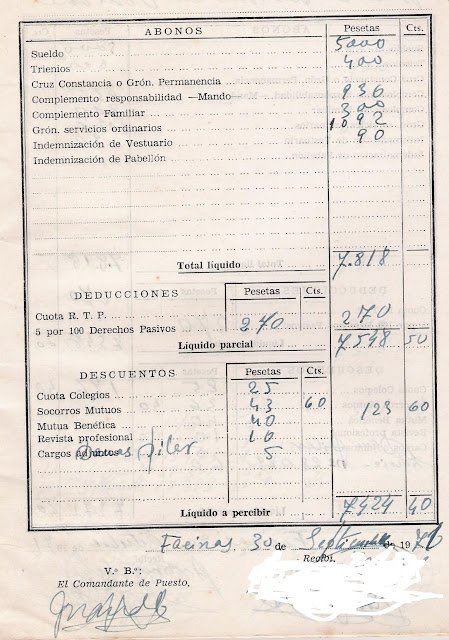 ABONOS Pesetas Cts.
Sueldo 5000
Trienios 400
Cruz Constancia o Grón. Permanencia
Complemento responsabilidad —Mando— 936
Complemento Familiar 300
Grón. servicios ordinarios 1092
Indemnización de Vestuario 90
Indemnización de Pabellón
Total líquido 7.818
DEDUCCIONES Pesetas Cts.
Cuota R. T. P.
5 por 100 Derechos Pasivos 270 270
Líquido parcial 7548
DESCUENTOS Pesetas Cts.
Cuota Colegios 25
Socorros Mutuos 43 60 123 60
Mutua Benéfica 40
Revista profesional 10
Cargos adjuntos 5
Líquido a percibir 7424 40
Facinas 30 de Septiembre de 1976
Recibí
V.º B.º:
El Comandante de Puesto,